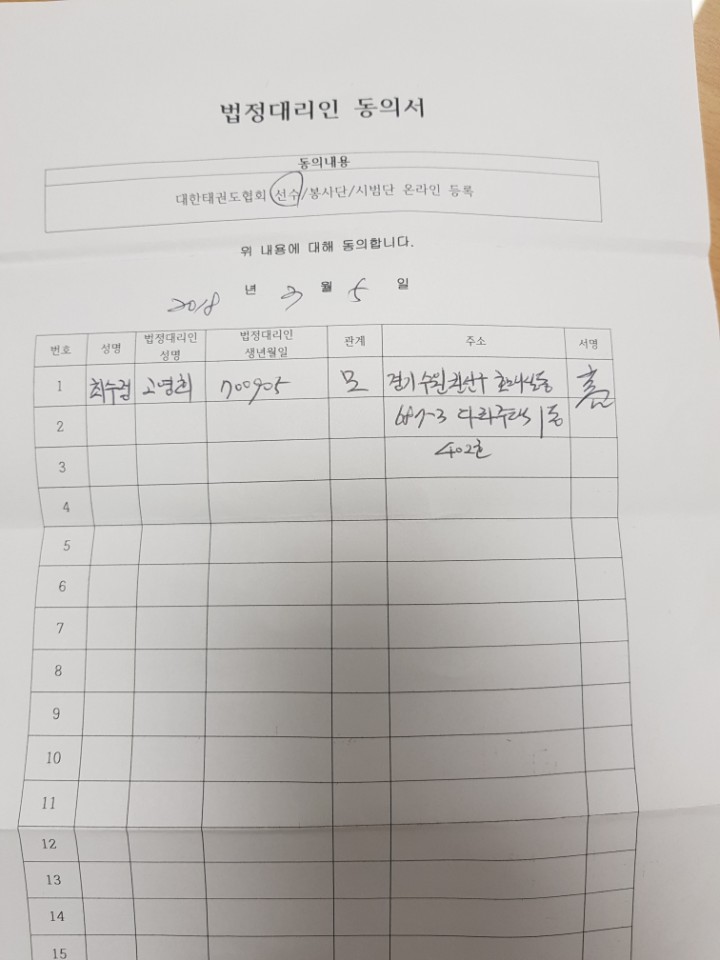 법정대리인 동의서
동의내용
대한태권도협회 선수/봉사단/시범단 온라인 등록
위 내용에 대해 동의합니다.
2018 년 3 월 5 일
번호 성명 법정대리인 성명 법정대리인 생년월일 관계 주소 서명
1 고영희 700905 모 경기 수원 권선구
2 687-3 1동
3 402호
4
5
6
7
8
9
10
11
12
13
14
15